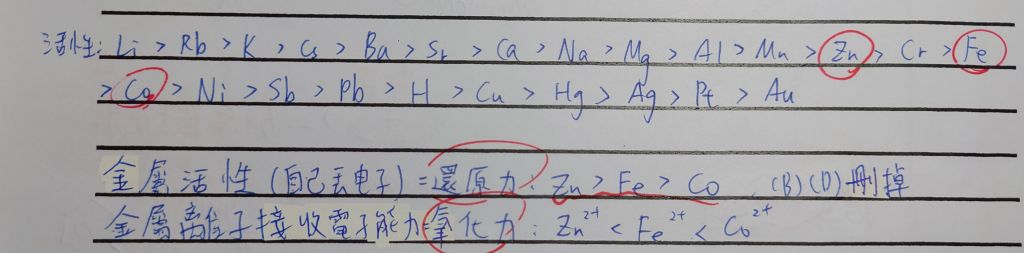 活性: Li > Rb > K > Cs > Ba > Sr > Ca > Na > Mg > Al > Mn > Zn > Cr > Fe
> Co > Ni > Sb > Pb > H > Cu > Hg > Ag > Pt > Au
金屬活性(自己丟电子)=還原力: Zn > Fe > Co (B)(D)刪掉
金屬離子接收電子能力=氧化力: Zn²⁺ < Fe²⁺ < Co²⁺